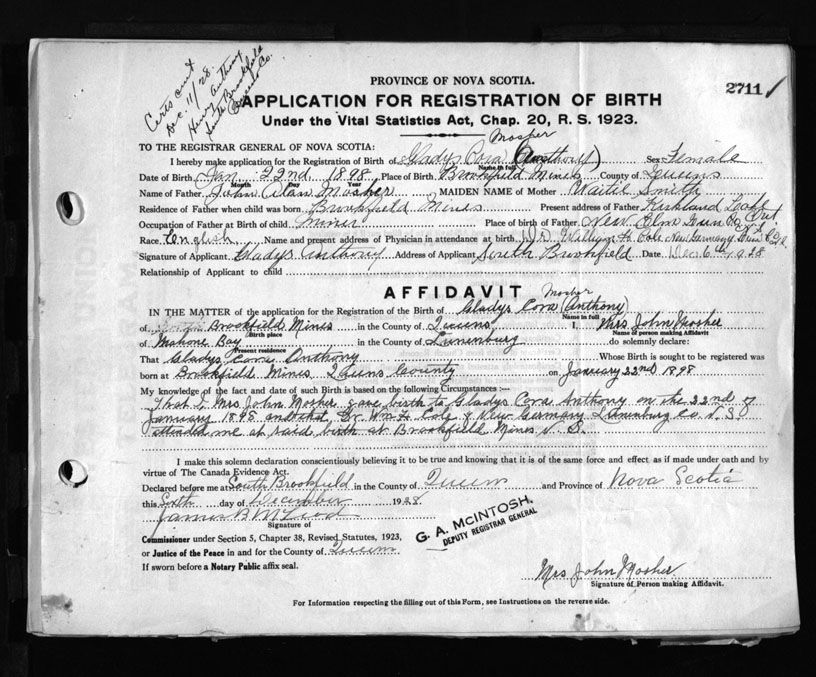 Certs out
Dec. 11/28.
Henry Anthony
South Brookfield
Queens Co.
2711
PROVINCE OF NOVA SCOTIA.
APPLICATION FOR REGISTRATION OF BIRTH
Under the Vital Statistics Act, Chap. 20, R. S. 1923.
Mosher
TO THE REGISTRAR GENERAL OF NOVA SCOTIA:
I hereby make application for the Registration of Birth of Gladys Cora (Anthony) Sex Female
Name in full
Date of Birth Jan 22nd 1898 Place of Birth Brookfield Mines County of Queens
Month Day Year
Name of Father John Alan Mosher MAIDEN NAME of Mother Smith
Residence of Father when child was born Brookfield Mines Present address of Father Kirkland Lake Ont
Occupation of Father at Birth of child miner Place of birth of Father New Elm Lun Co N.S.
Race English Name and present address of Physician in attendance at birth Dr. William F. Cole New Germany Lun Co N.S.
Signature of Applicant Gladys Anthony Address of Applicant South Brookfield Date Dec 6th 1928
Relationship of Applicant to child
AFFIDAVIT
Mosher
IN THE MATTER of the application for the Registration of the Birth of Gladys Cora (Anthony)
Name in full
of Brookfield Mines in the County of Queens, I, Mrs John Mosher
Birth place Name of person making Affidavit
of Mahone Bay in the County of Lunenburg do solemnly declare:
Present residence
That Gladys Cora Anthony Whose Birth is sought to be registered was
born at Brookfield Mines Queens County on January 22nd 1898
My knowledge of the fact and date of such Birth is based on the following Circumstances :—
That I, Mrs John Mosher gave birth to Gladys Cora Anthony on the 22nd of
January 1898 and that Dr Wm F. Cole of New Germany Lunenburg Co. N.S.
attended me at said birth at Brookfield Mines N.S.
I make this solemn declaration conscientiously believing it to be true and knowing that it is of the same force and effect as if made under oath and by
virtue of The Canada Evidence Act.
Declared before me at South Brookfield in the County of Queens and Province of Nova Scotia
this Sixth day of December 1928
James B McLeod
Signature of
G. A. McINTOSH.
DEPUTY REGISTRAR GENERAL
Commissioner under Section 5, Chapter 38, Revised Statutes, 1923,
or Justice of the Peace in and for the County of Queens
If sworn before a Notary Public affix seal.
Mrs John Mosher
Signature of Person making Affidavit.
For Information respecting the filling out of this Form, see Instructions on the reverse side.